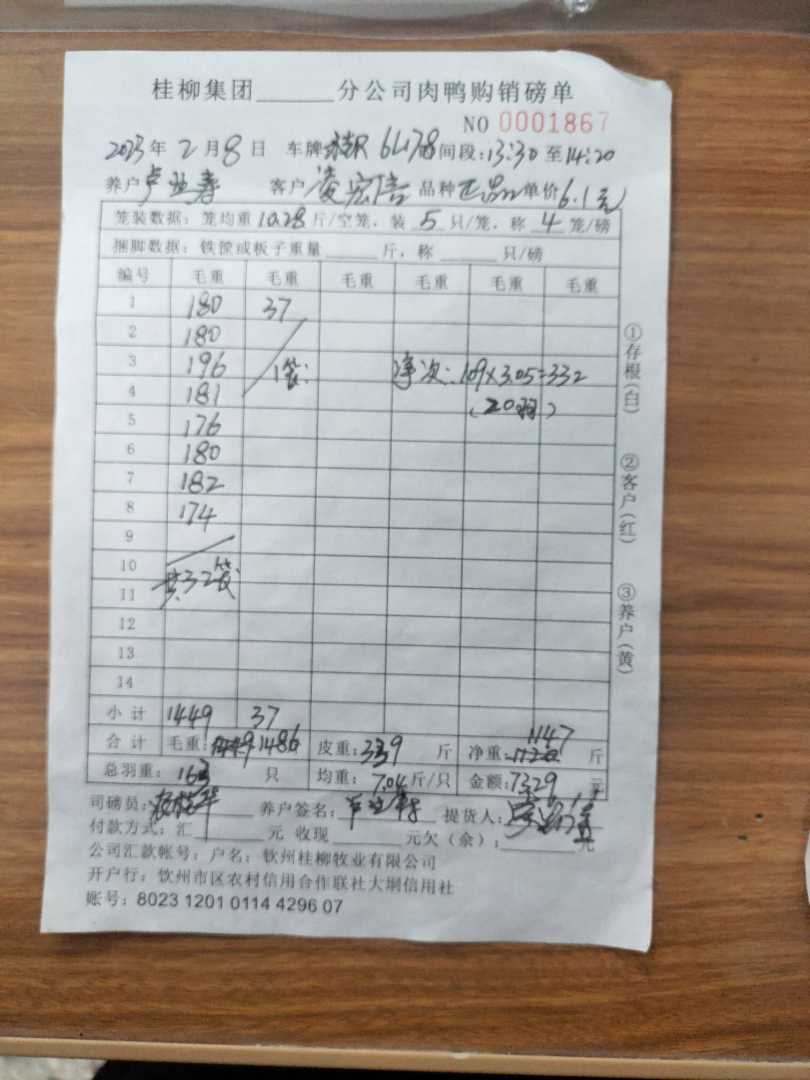 桂柳集团______分公司肉鸭购销磅单
NO 0001867
2023年2月8日 车牌 61178 间段:13:30至14:20
养户 卢 寿 客户 凌宏信 品种 正品 单价6.1元
笼装数据:笼均重10.28斤/空笼,装5只/笼,称4笼/磅
捆脚数据:铁筐或板子重量______斤,称______只/磅
编号 毛重 毛重 毛重 毛重 毛重 毛重
1 180 37
2 180
3 196 1笼: 净次:109×3.05=332
4 181 (20羽)
5 176
6 180
7 182
8 174
9
10
11 共32笼
12
13
14
小计 1449 37
合计 毛重:1486 皮重:339斤 净重:1147斤
总羽重:163只 均重:7.04斤/只 金额:7329元
司磅员: 养户签名: 提货人:
付款方式:汇______元 收现______元欠(余):______元
公司汇款帐号:户名:钦州桂柳牧业有限公司
开户行:钦州市区农村信用合作联社大垌信用社
账号:8023 1201 0114 4296 07
①存根(白)
②客户(红)
③养户(黄)